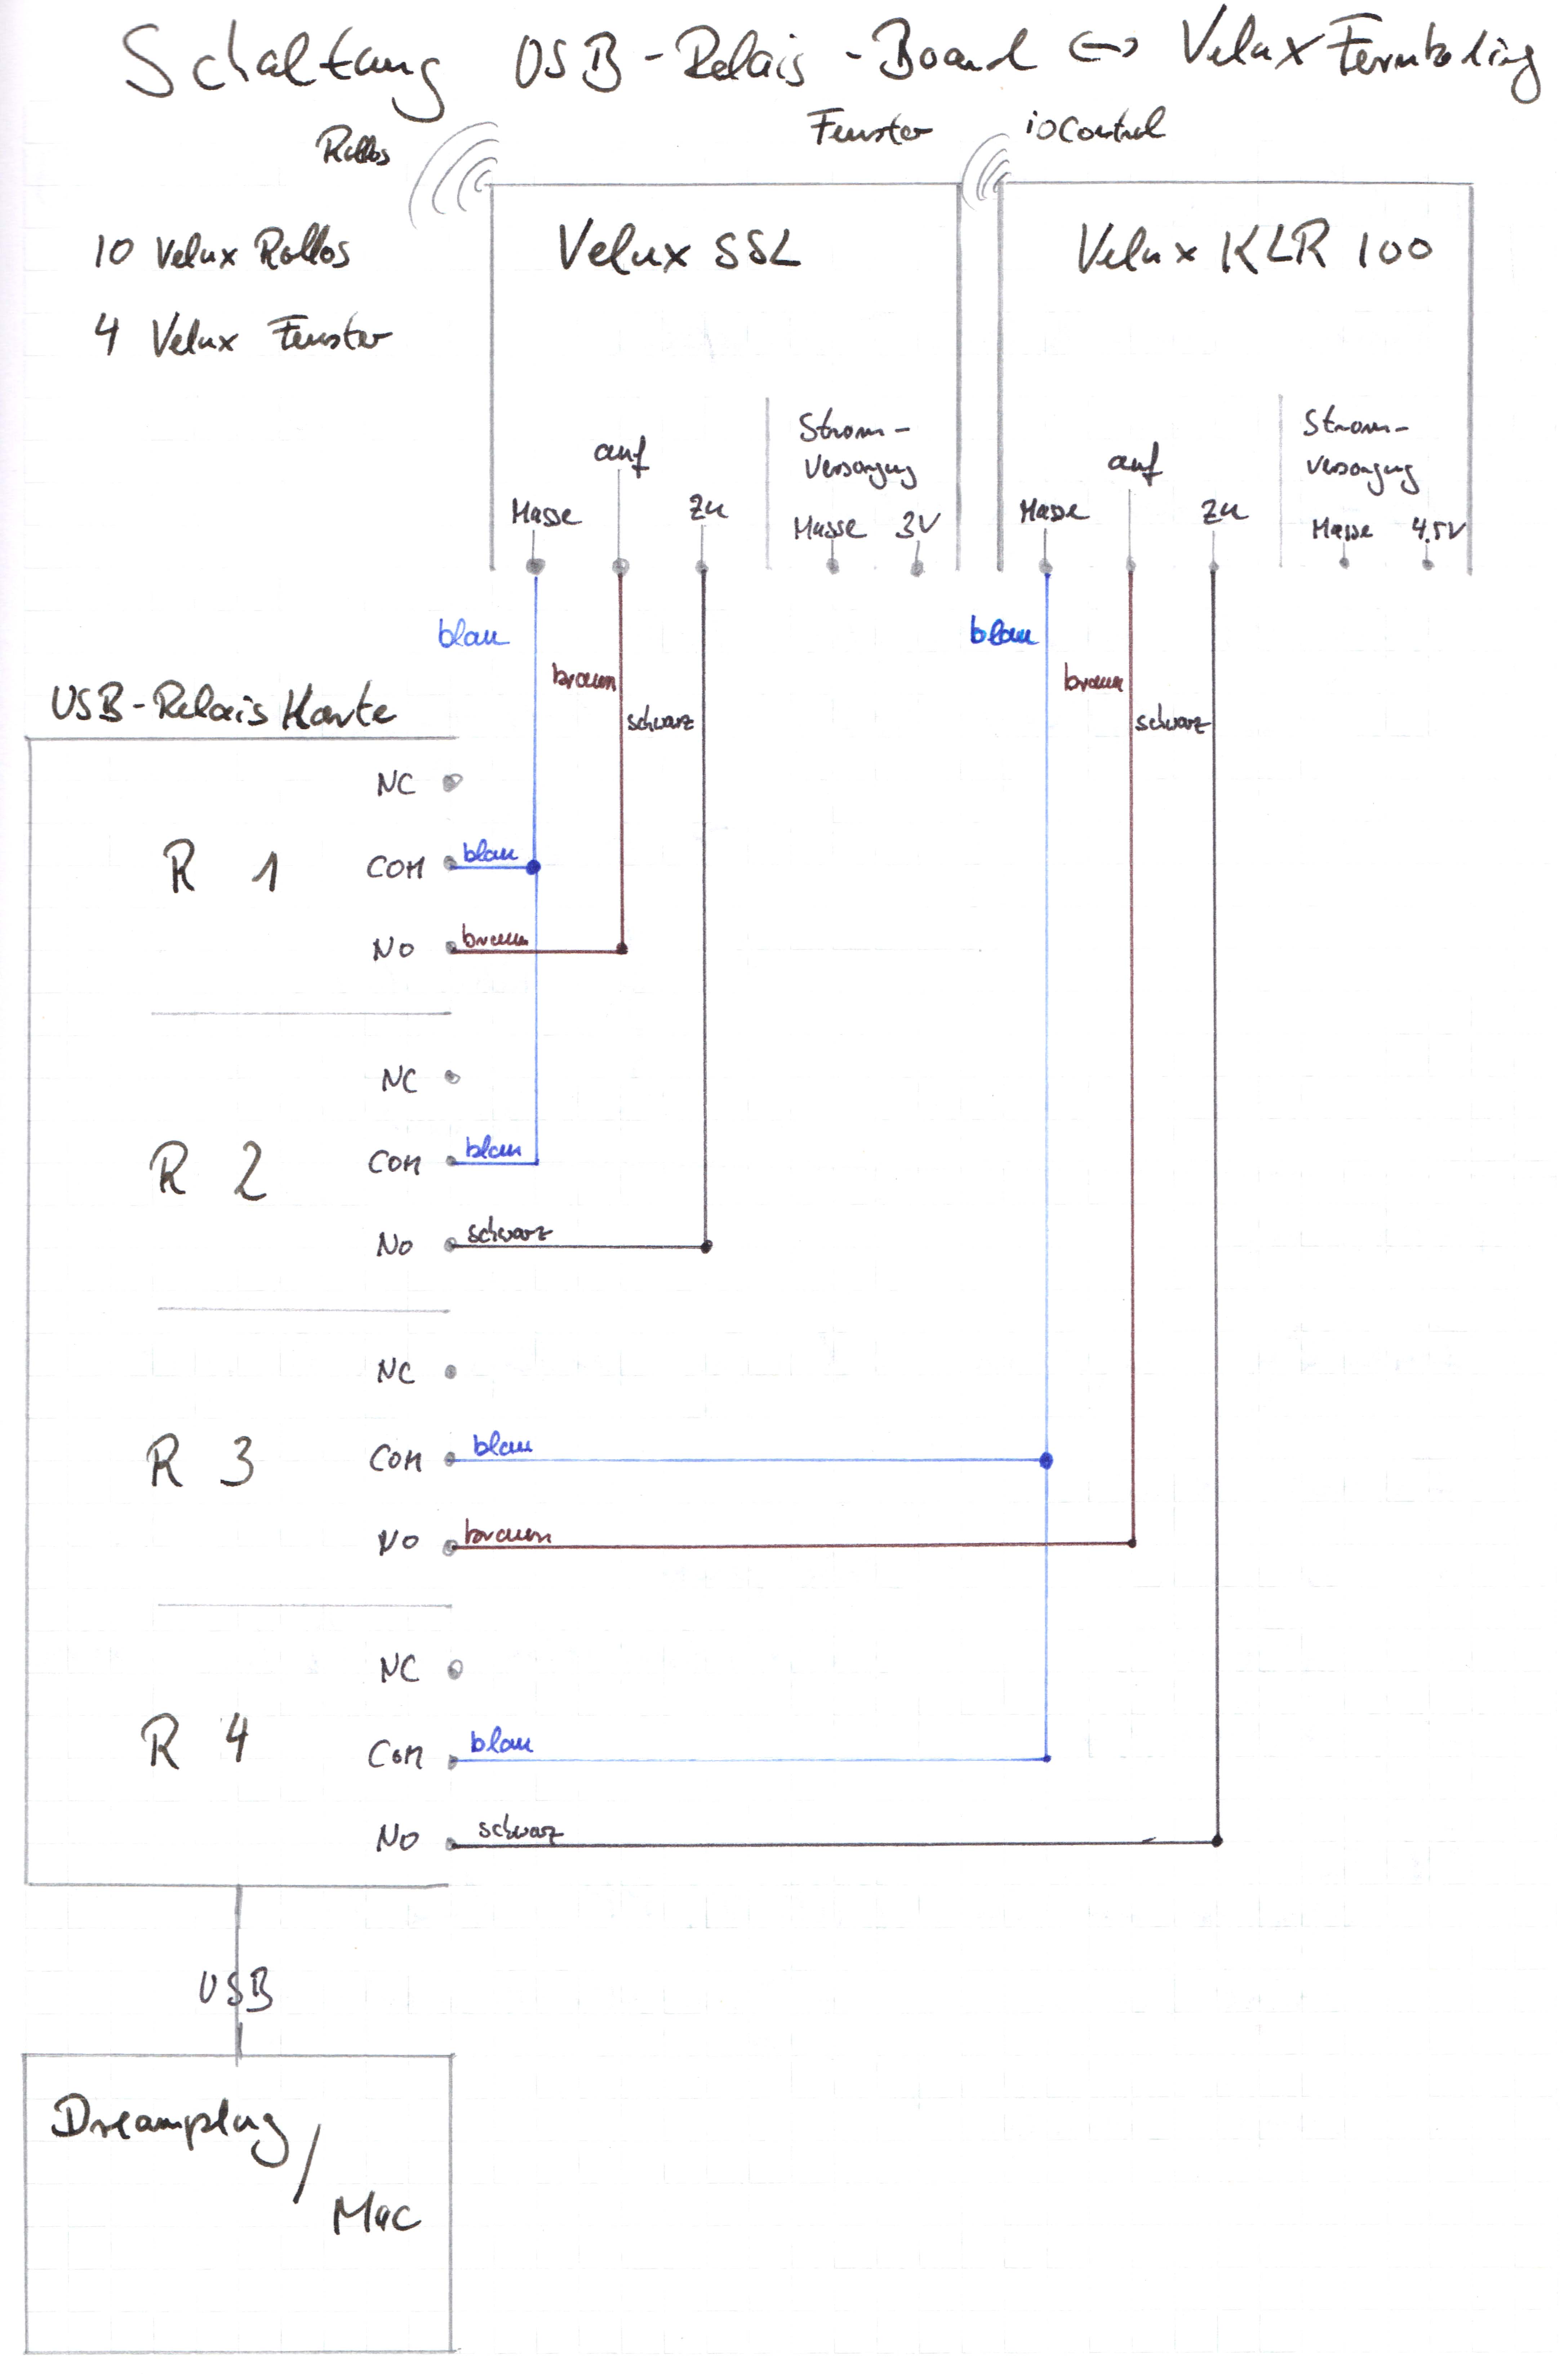 Schaltung USB-Relais-Board <-> Velux Fernbeding
Rollos
Fenster
ioControl
10 Velux Rollos
4 Velux Fenster
Velux SSL
Velux KLR 100
Masse
auf
zu
Strom-
versorgung
Masse 3V
Masse
auf
zu
Strom-
versorgung
Masse 4.5V
blau
braun
schwarz
blau
braun
schwarz
USB-Relais Karte
R 1
NC
COM blau
NO braun
R 2
NC
COM blau
NO schwarz
R 3
NC
COM blau
NO braun
R 4
NC
COM blau
NO schwarz
USB
Dreamplug/
Mac